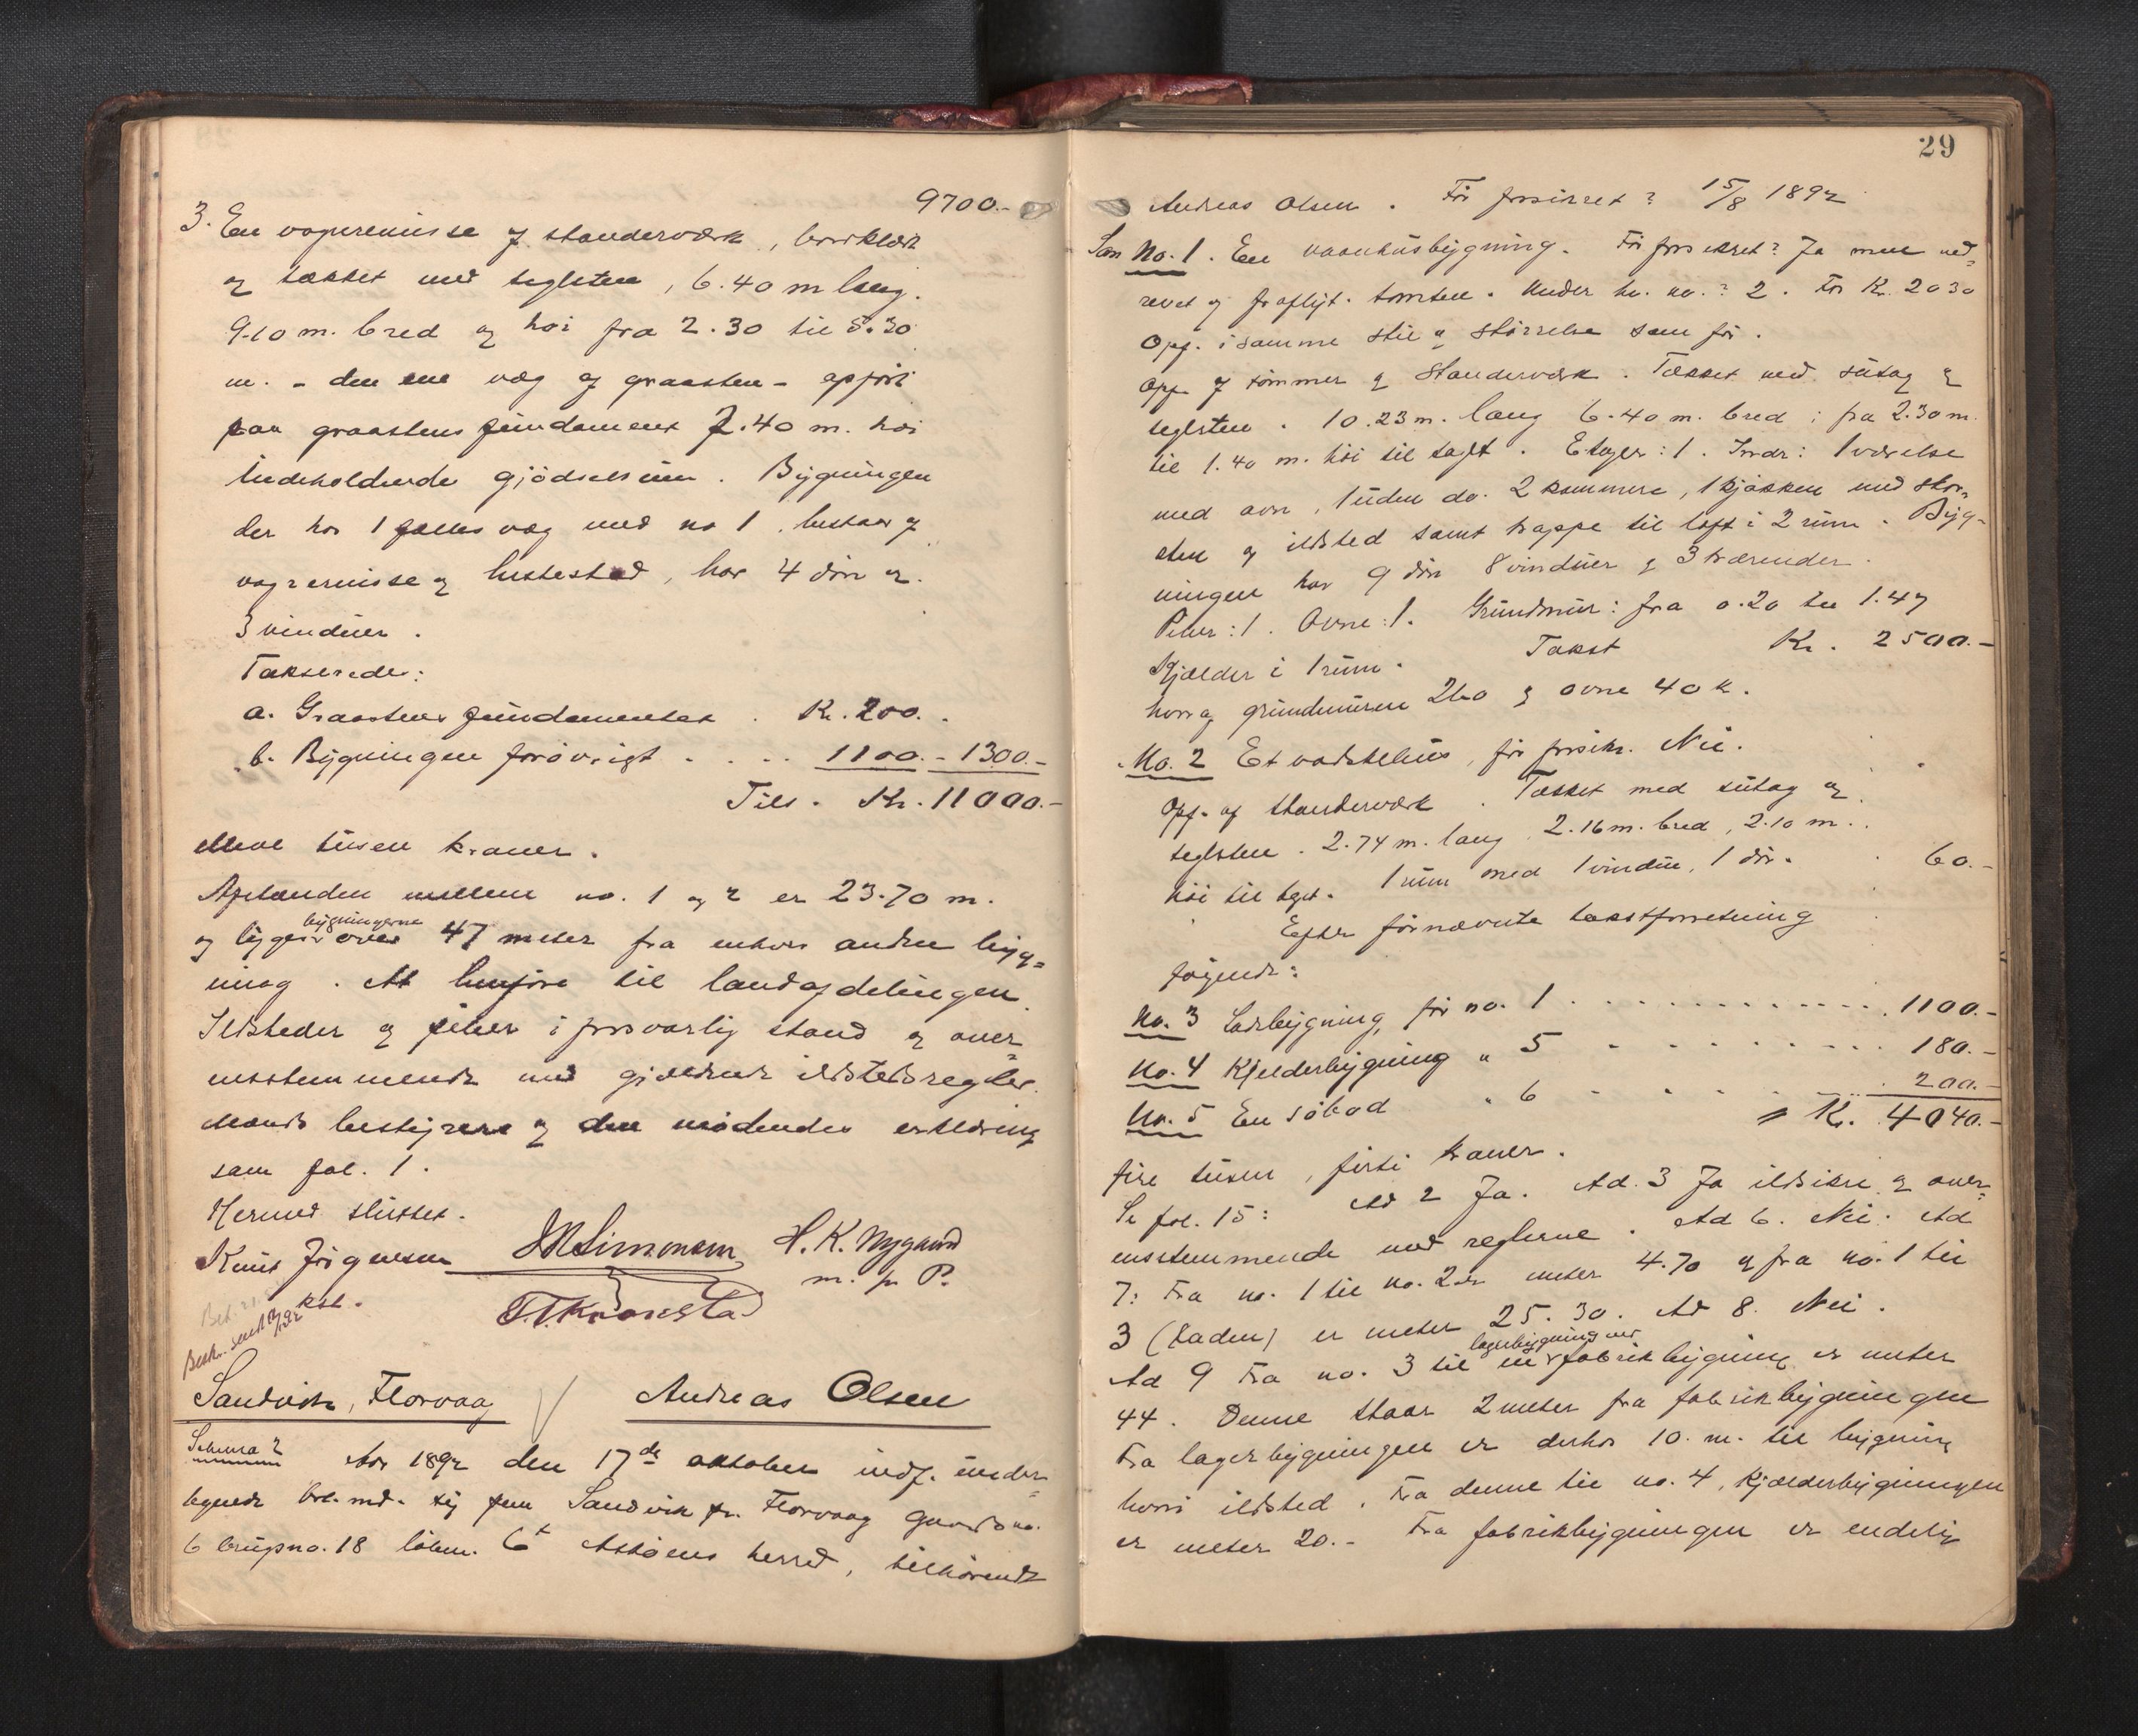 9700.-
3. En vognremisse af standerværk, bordklædt
og tækket med teglsten, 6.40 m lang.
9.10 m. bred og høi fra 2.30 til 5.30
m. - den ene væg af graasten - opført
paa graastens fundament 2.40 m. høi
indeholdende gjødselsrum. Bygningen
der har 1 fælles væg med no 1, bestaar af
vognremisse og hestestad, har 4 dör og
3 vinduer.
Takserede:
a. Graastens fundamentet . Kr. 200.
b. Bygningen forøvrigt . . . . 1100.- 1300.-
Tils. Kr. 11000.-
elleve tusen kroner.
Afstanden mellem no. 1 og 2 er 23.70 m.
bygningerne
og ligger over 47 meter fra enhver anden byg=
ning. At henføre til landafdelingen.
Ildsteder og piber i forsvarlig stand og over=
ensstemmende med gjældende ildstedsregler.
Mænds bestyrere og den mødendes erklæring
som fol. 1.
Hermed sluttet.
Knut Jørgensen JMSimonsen H. K. Nygaard
kst. m. p. P.
T.T.Kronstad
Besk. sendt
Sandvik, Florvaag Andreas Olsen
Schema 2 Aar 1892 den 17de oktober indf. under=
tegnede sig paa Sandvik fr. Florvaag Gaards no.
6 brugsno. 18 löben. 6 Askøens herred, tilhørende
29
Andreas Olsen. Før forsikret? 15/8 1892
Som No. 1. En vaanhusbygning. Før forsikret? Ja men ned=
revet og fraflyt. tomten. Under hv. no.? 2. For Kr. 2030
Opf. i samme stil og størrelse som før.
Opf. af tømmer og Standerværk. Tækket med sutag og
teglsten. 10.23 m. lang 6.40 m. bred; fra 2.30 m.
til 1.40 m. høi til taget. Etager: 1. Indr: 1 værelse
med ovn, 1 uden do. 2 kammere, 1 kjøkken med skor=
sten og ildsted samt trappe til loft i 2 rum. Byg=
ningen har 9 dör 8 vinduer og 3 tværender.
Piber: 1. Ovne: 1. Grundmur: fra 0.20 til 1.47
Kjælder i 1 rum. Takst Kr. 2500.-
hvoraf grundmuren 260 og ovne 40 k.
No. 2 Et vadskehus, før forsikr. Nei.
Opf. af standerværk. Tækket med sutag og
teglsten. 2.74 m. lang, 2.16 m. bred, 2.10 m.
høi til taget. 1 rum med 1 vindu, 1 dör. 60.-
Efter førnævnte takstforretning
følgende:
No. 3 Ladebygning, før no. 1 . . . . . . . . . 1100.-
No. 4 Kjelderbygning " 5 . . . . . . . . . 180.-
No. 5 En søbod " 6 . . . . . . 200.-
Kr. 4040.-
fire tusen, førti kroner.
Se fol. 15: Ad 2 Ja. Ad. 3 Ja ildsikre og over=
ensstemmende med reglerne. Ad 6. Nei. Ad
7: Fra no. 1 til no. 2 er meter 4.70 og fra no. 1 til
3 (laden) er meter 25.30. Ad 8. Nei.
lagerbygning ved
Ad 9 Fra no. 3 til en fabrikbygning er meter
44. Denne staar 2 meter fra fabrikbygningen
Fra lagerbygningen er derhos 10. m. til bygning
hvori ildsted. Fra denne til no. 4, Kjælderbygningen
er meter 20.- Fra fabrikbygningen er endelig